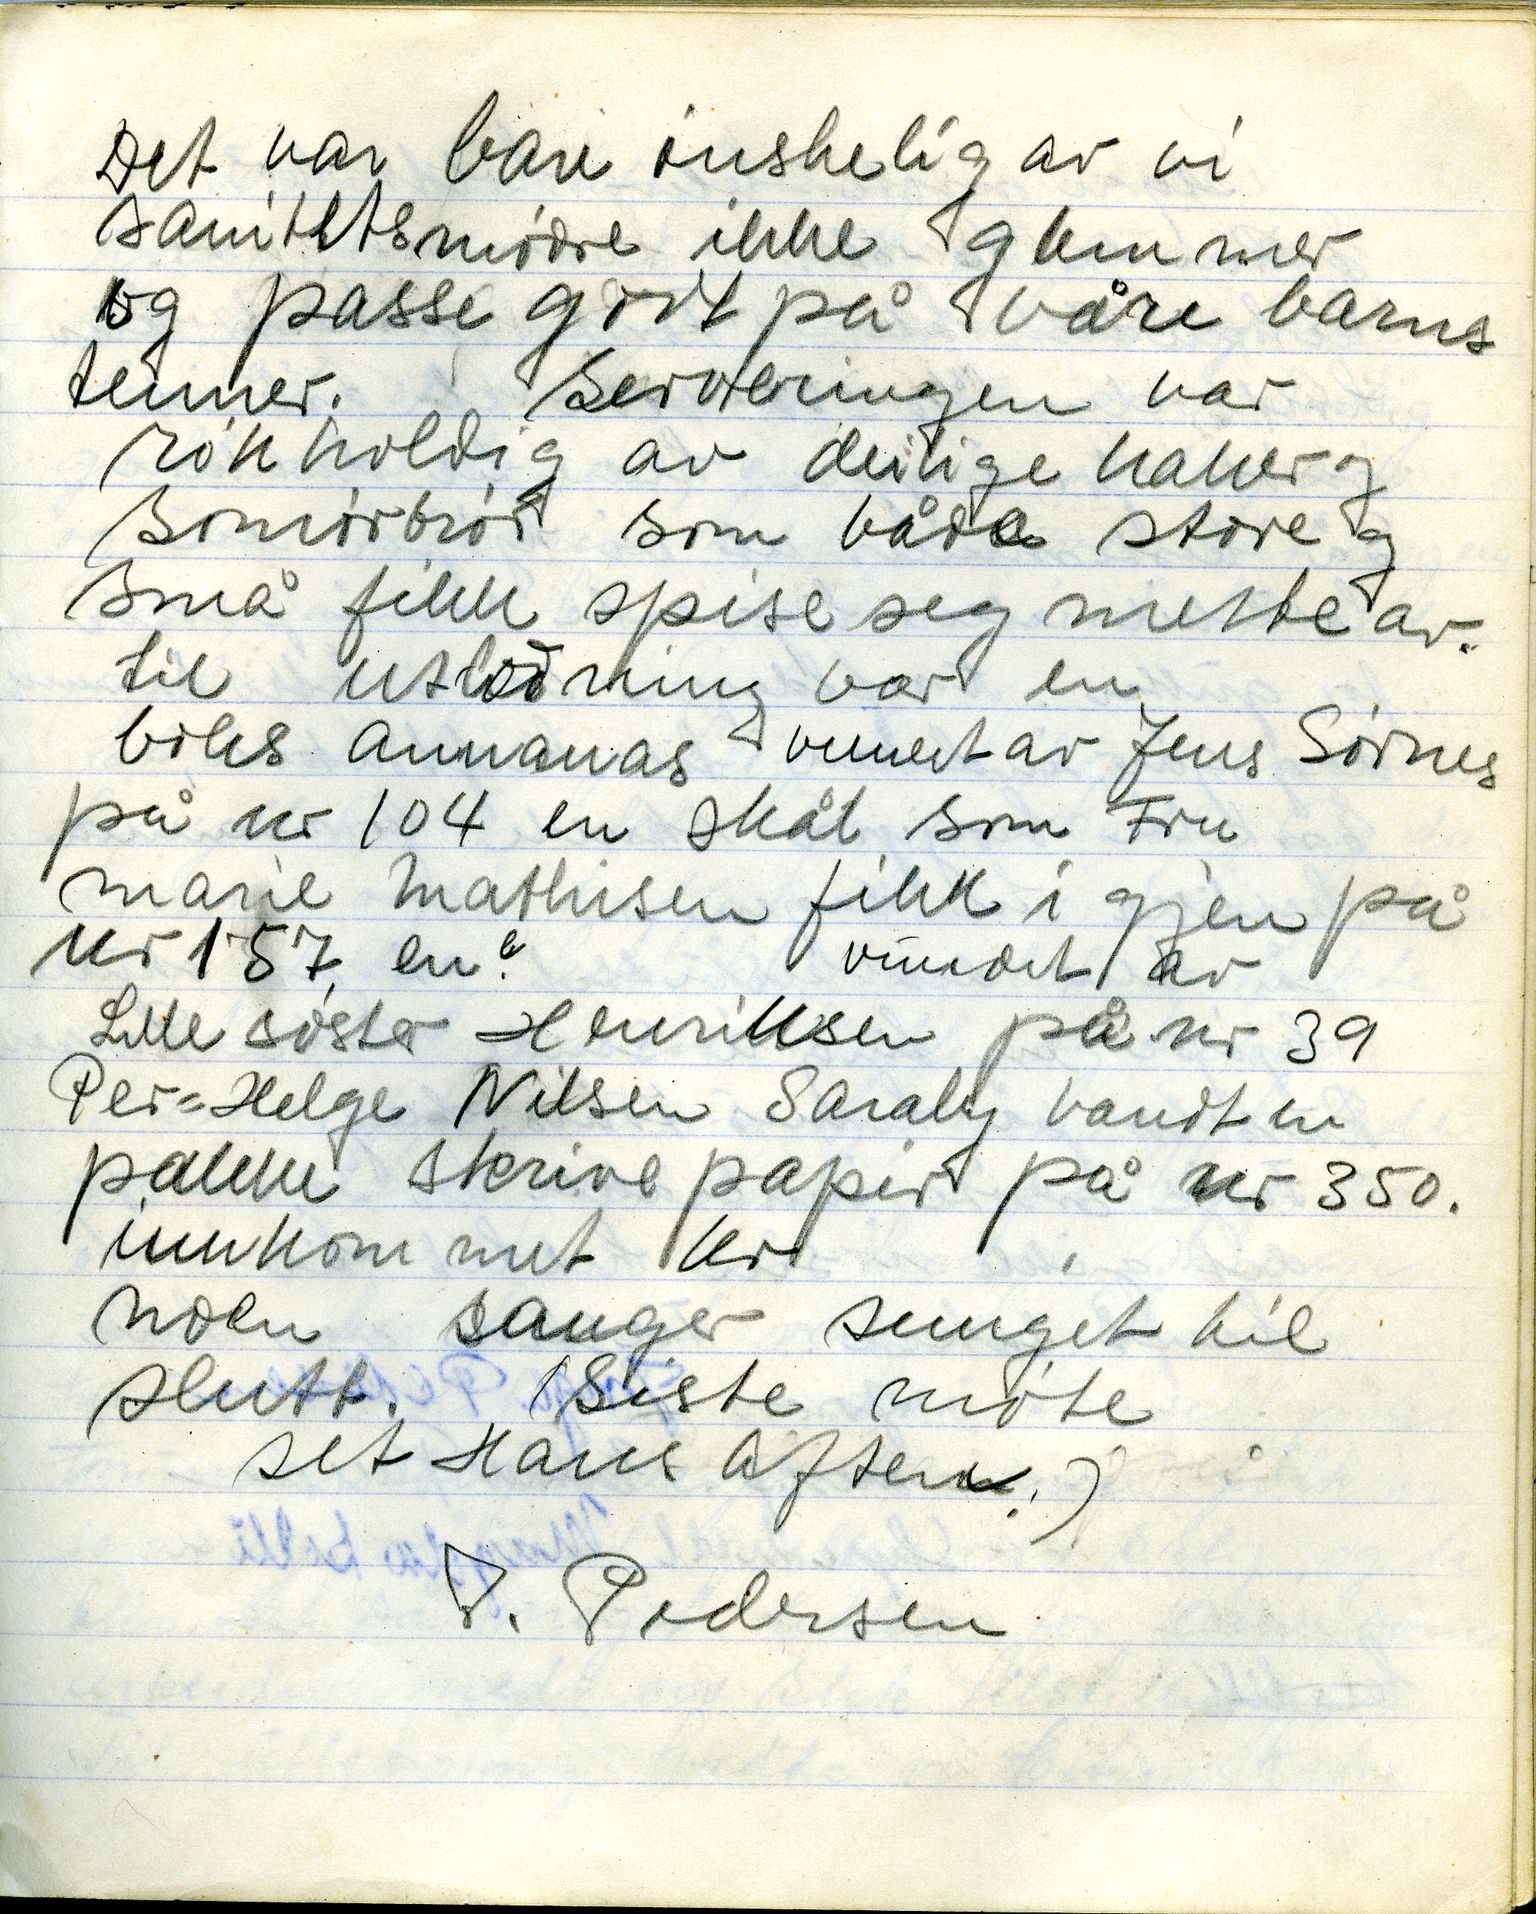 Det var bare ønskelig av vi
sanitetsmødre ikke glemmer
og passe godt på våre barns
tenner. Serveringen var
rikholdig av deilige kaker og
smørbrød som både store og
små fikk spise seg mette av.
til utlodning var en
boks annanas vunnet av Jens Sørnes
på nr 104 en skål som Fru
marie Mathisen fikk i gjen på
nr 157, en? vundet av
Lille søster Henriksen på nr 39
Per=Helge Nilsen Saraby vandt en
pakke skrive papir på nr 350.
innkommet kr
noen sanger sunget til
slutt. (Siste møte
set Hans Aften.)
P. Pedersen